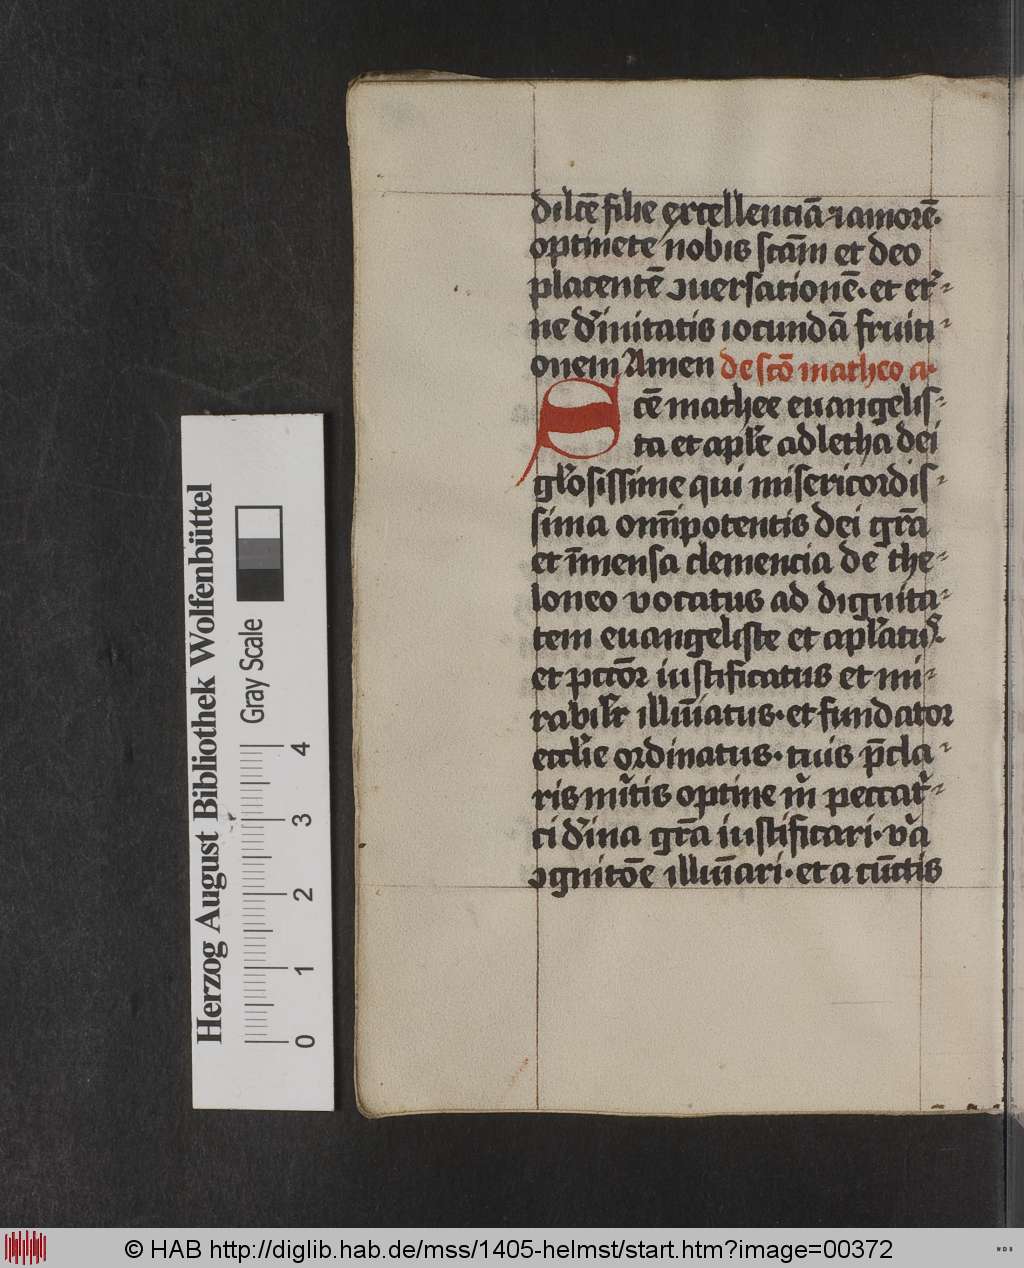 dilcē filie excellenciā ⁊ amorē·
optinete nobis scām et deo
placentē ꝯuersationē· et et'-
ne d'initatis iocundā fruiti-
onem Amen de scō matheo a·
Scē mathee euangelis-
ta et apl'e ad letha dei
gl'osissime qui misericordis-
sima om̄ipotentis dei gr̄a
et īmensa clemencia de the-
loneo vocatus ad dignita-
tem euangeliste et apl'atus
et pctōr iustificatus et mi-
rabilr̄ illūiatus· et fundator
eccl'ie ordinatus· tuis p̄cla-
ris m'itis optine m' peccat'-
ci d'ina gr̄a iustificari· v'a
ꝯgnitōe illūiari· et a cūctis
Herzog August Bibliothek Wolfenbüttel
Gray Scale
0 1 2 3 4
© HAB http://diglib.hab.de/mss/1405-helmst/start.htm?image=00372